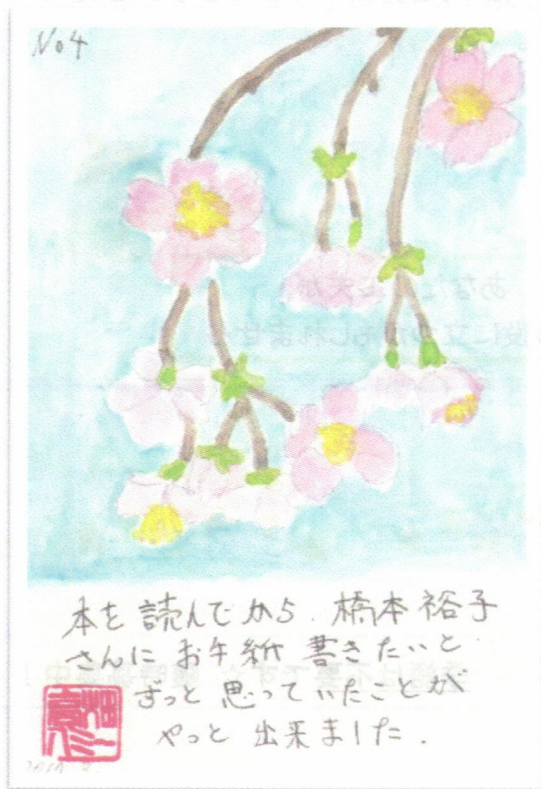 No 4
本を 読んでから. 橋本裕子
さんに お手紙 書きたいと
ずっと 思っていたことが
やっと 出来ました.